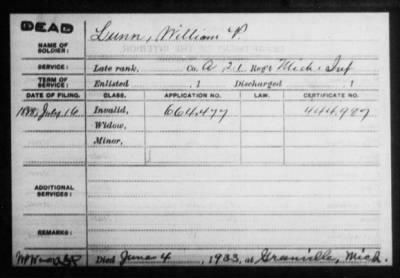 DEAD
NAME OF SOLDIER: Lunn, William P.
SERVICE: Late rank, Co. A, 21 Reg't Mich. Inf
TERM OF SERVICE: Enlisted , 1 Discharged 1
DATE OF FILING. CLASS. APPLICATION NO. LAW. CERTIFICATE NO.
1888, July 16 Invalid, 664,477 444,987
Widow,
Minor,
ADDITIONAL SERVICES:
REMARKS:
Died June 4, 1933, at Greenville, Mich.